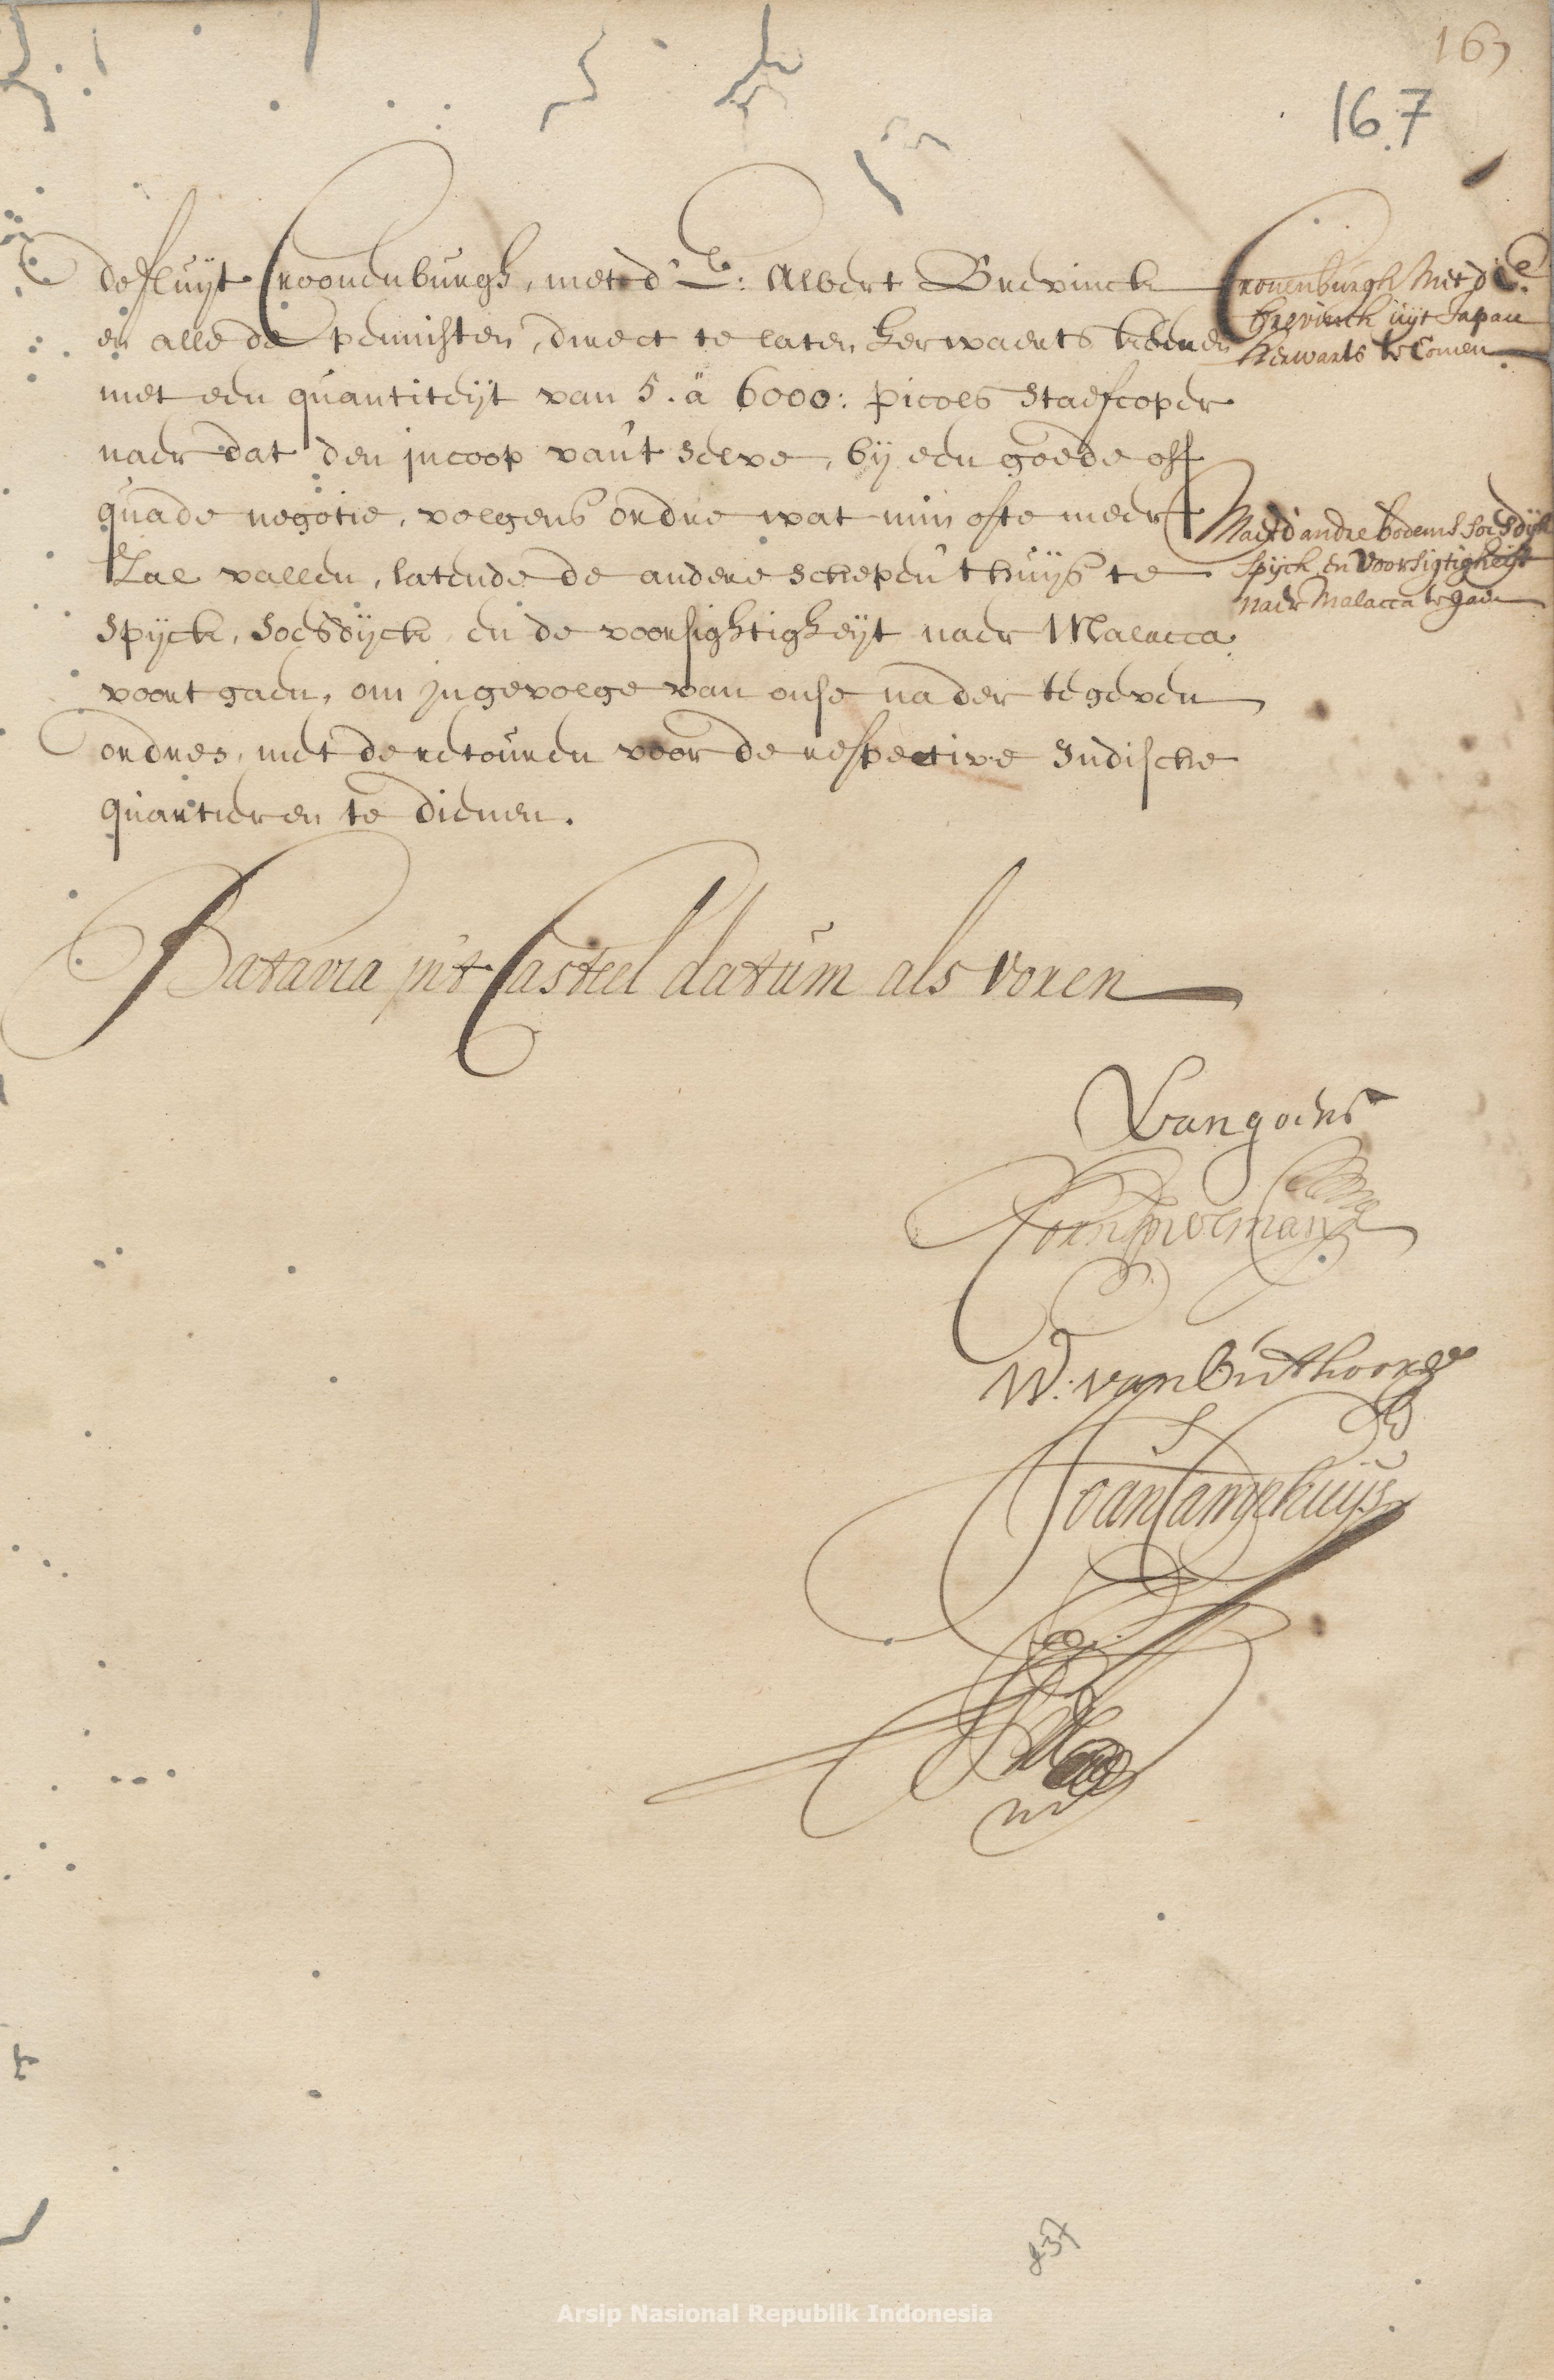 167
167
de fluÿt Croonenburgh, met d' E: Albert Brevinck
en alle de pennisten, direct te laten herwaerts komen
met een quantiteÿt van 5. à 6000: picols staefcoper
naer dat den incoop van 't selve, bÿ een goede off
quade negotie, volgens ordre wat min ofte meer
Zal vallen, latende de andere schepen 't huÿs te
Spÿck, Soesdÿck, en de voorsightigheÿt naer Malacca
voort gaen, om in gevolge van onse nader te geven
ordres, met de retouren voor de respective Indische
quartieren te dienen.
Cronenburgh met d' E.
Brevinck uÿt Japan
herwarts te Comen
Maer d'andre bodems Soesdÿk
Spÿck en Voorsigtigheÿt
naer Malacca te gaen
Batavia in 't Casteel datum als voren
Van goens
Corn: Speelman
W: van Outhoorn
Joan Camphuÿs
837
Arsip Nasional Republik Indonesia